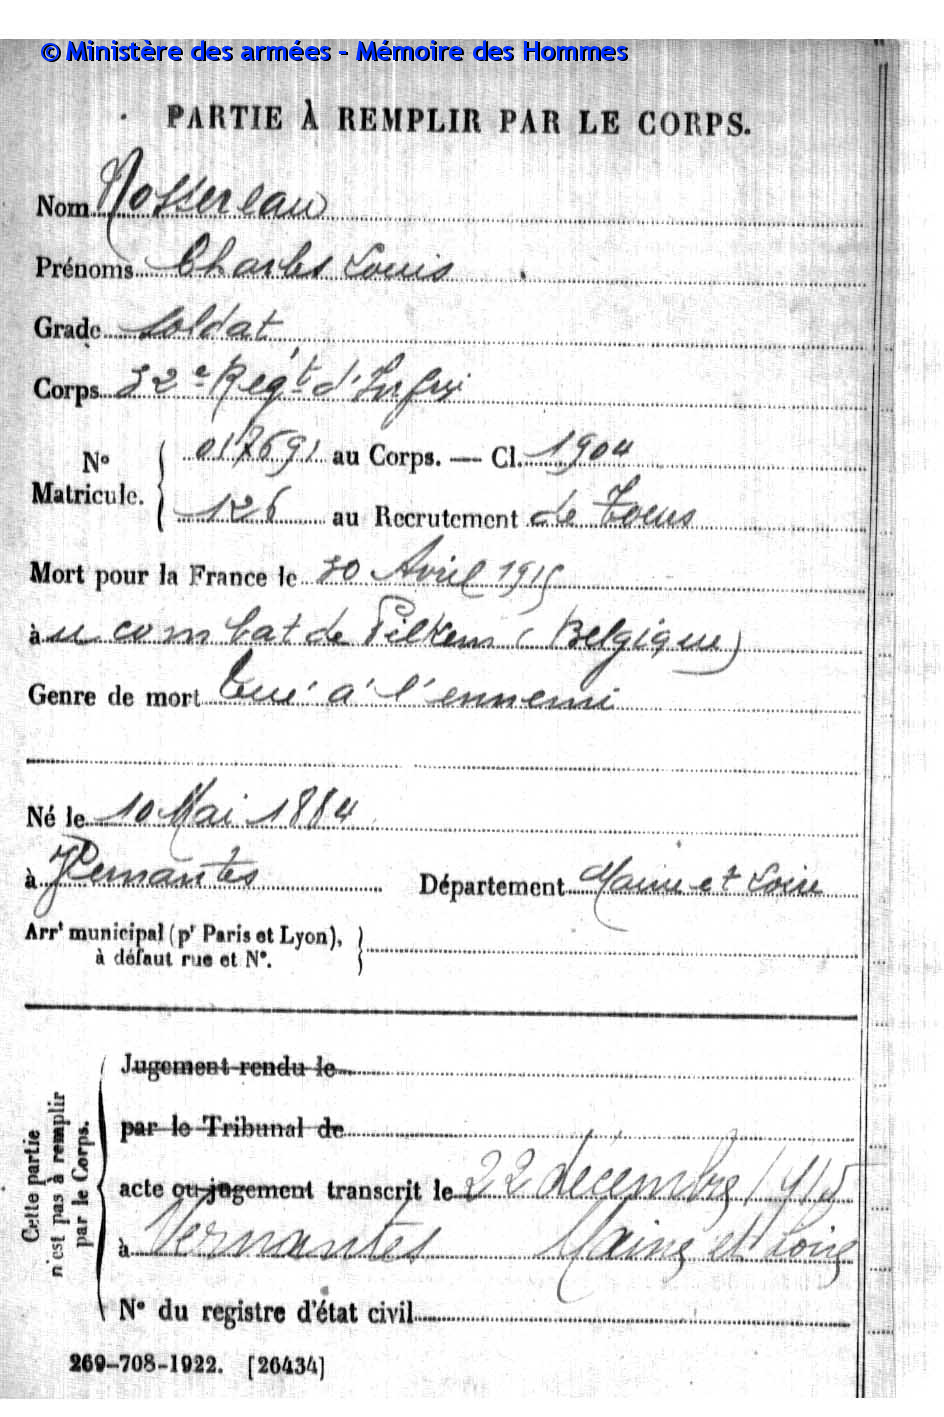 © Ministère des armées - Mémoire des Hommes
PARTIE À REMPLIR PAR LE CORPS.
Nom Rossereau
Prénoms Charles Louis
Grade Soldat
Corps 32e Régt d'Infie
No Matricule. { 017691 au Corps. — Cl. 1904
126 au Recrutement de Tours
Mort pour la France le 30 Avril 1915
à u combat de Pilkem (Belgique)
Genre de mort Tué à l'ennemi
Né le 10 Mai 1884
à Vernantes Département Maine et Loire
Arrt municipal (pr Paris et Lyon), }
à défaut rue et No.
Cette partie n'est pas à remplir par le Corps.
Jugement rendu le
par le Tribunal de
acte ou jugement transcrit le 22 décembre 1915
à Vernantes Maine et Loire
No du registre d'état civil
269-708-1922. [26434]